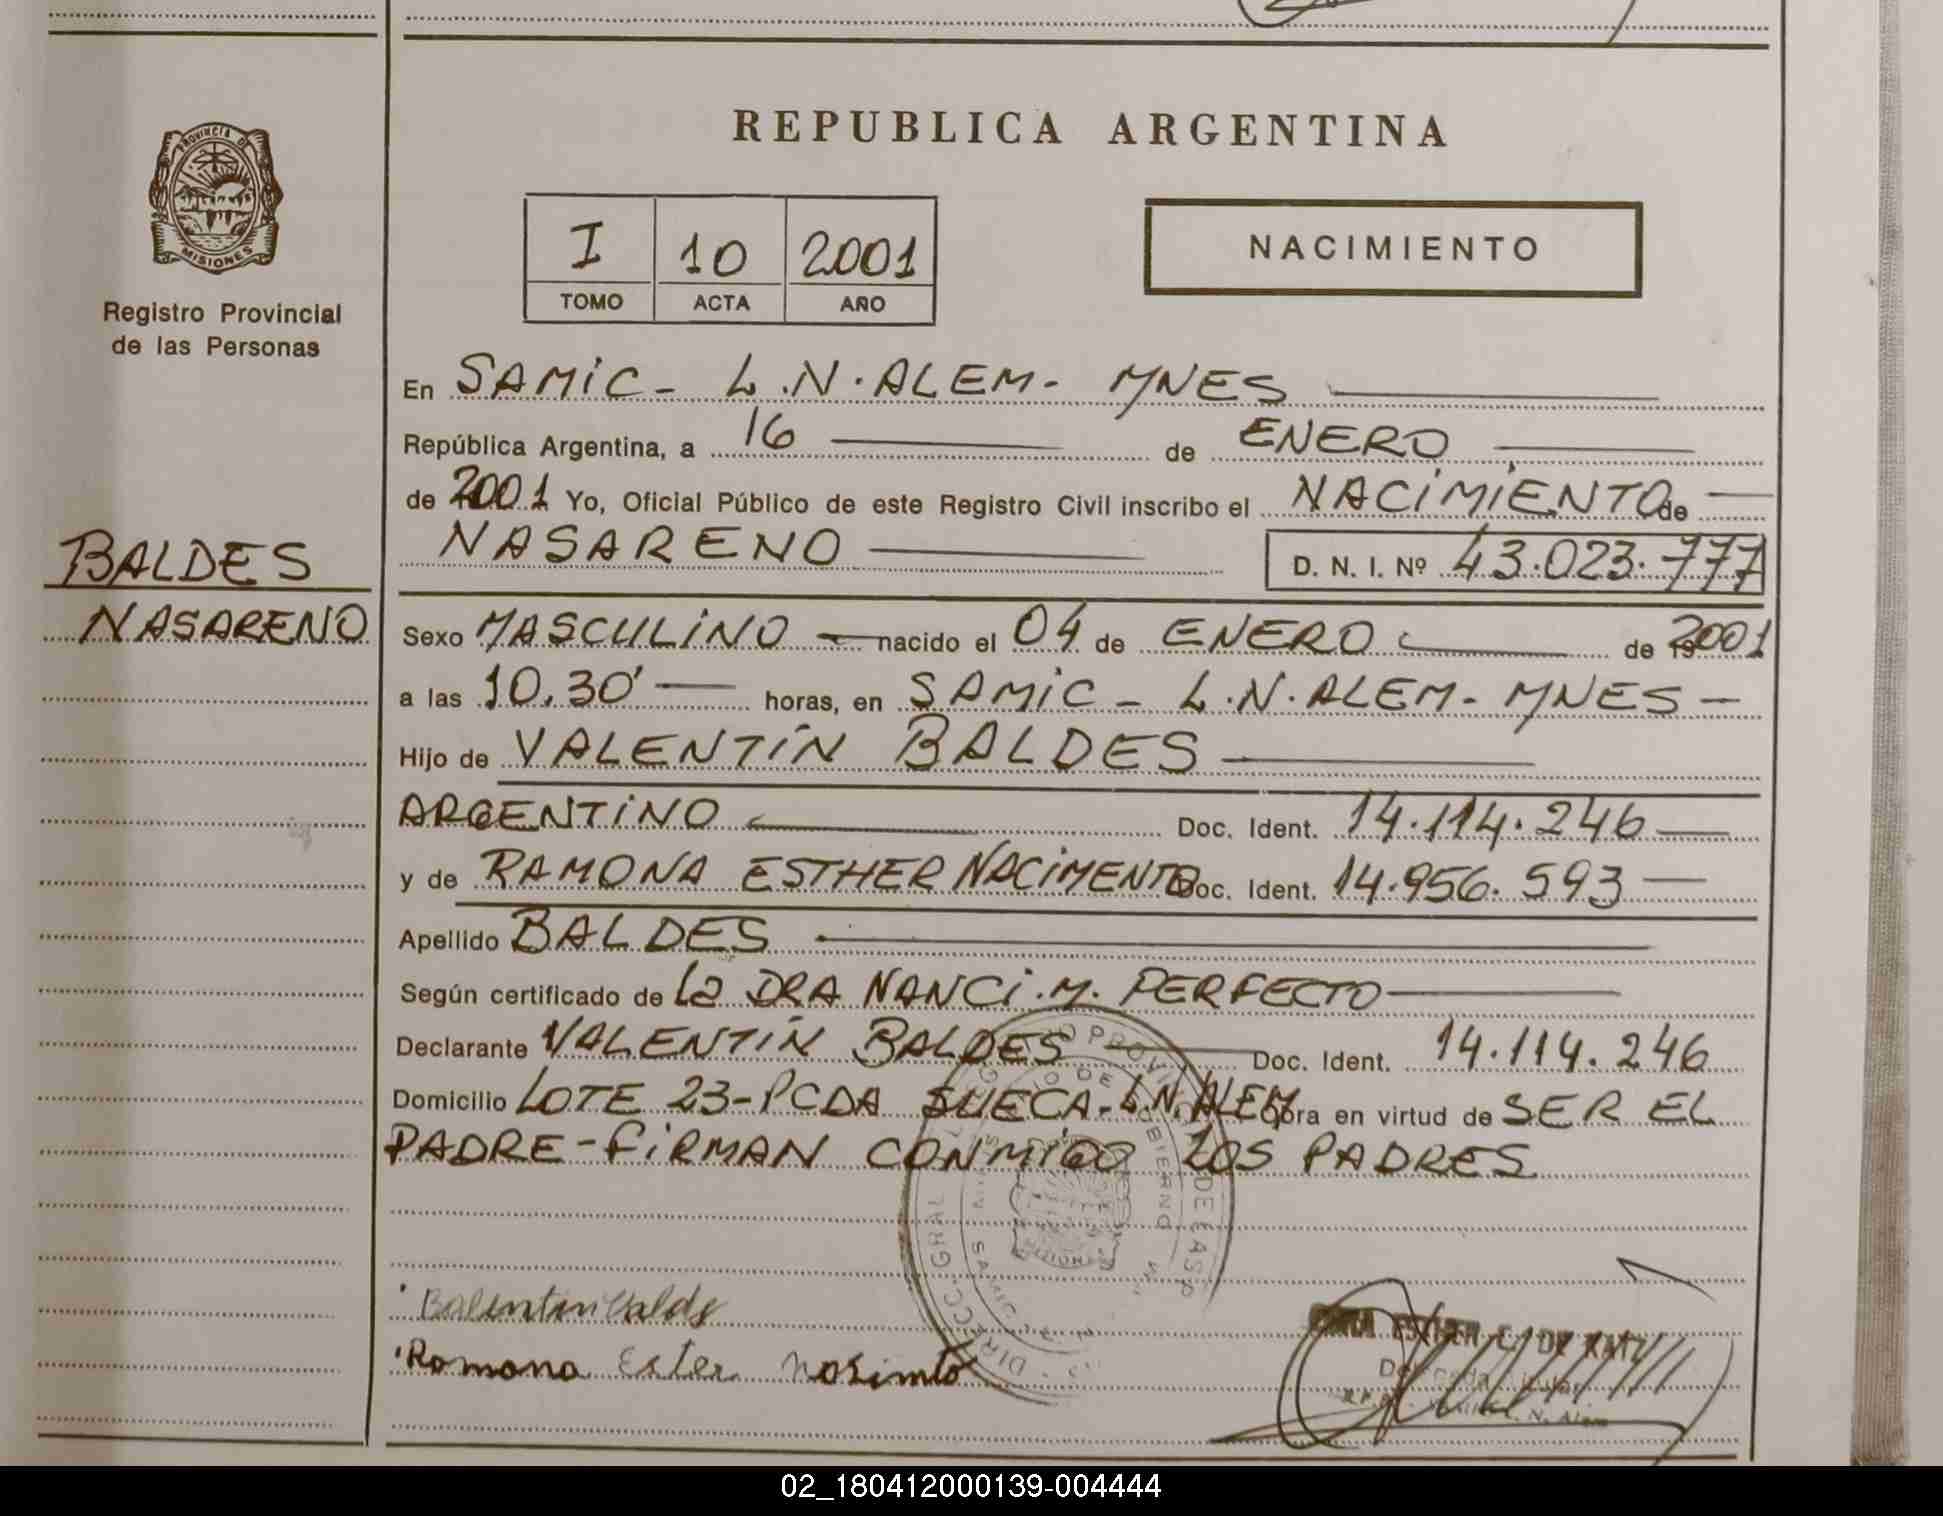 PROVINCIA DE
MISIONES
Registro Provincial
de las Personas
BALDES
NASARENO
REPUBLICA ARGENTINA
I 10 2001
TOMO ACTA AÑO
NACIMIENTO
En SAMIC - L.N. ALEM - MNES
República Argentina, a 16 de ENERO
de 2001 Yo, Oficial Público de este Registro Civil inscribo el NACIMIENTO de
NASARENO D. N. I. Nº 43.023.777
Sexo MASCULINO nacido el 04 de ENERO de 2001
a las 10,30' horas, en SAMIC - L.N. ALEM - MNES -
Hijo de VALENTÍN BALDES
ARGENTINO Doc. Ident. 14.114.246
y de RAMONA ESTHER NACIMENTO Doc. Ident. 14.956.593
Apellido BALDES
Según certificado de La DRA NANCI. M. PERFECTO
Declarante VALENTÍN BALDES Doc. Ident. 14.114.246
Domicilio LOTE 23 - PCDA SUECA - L.N. ALEM obra en virtud de SER EL
PADRE - FIRMAN CONMIGO LOS PADRES
Balentin Valdes
Ramona Ester Nosimto
ESTHER C. DE KATZ
02_180412000139-004444